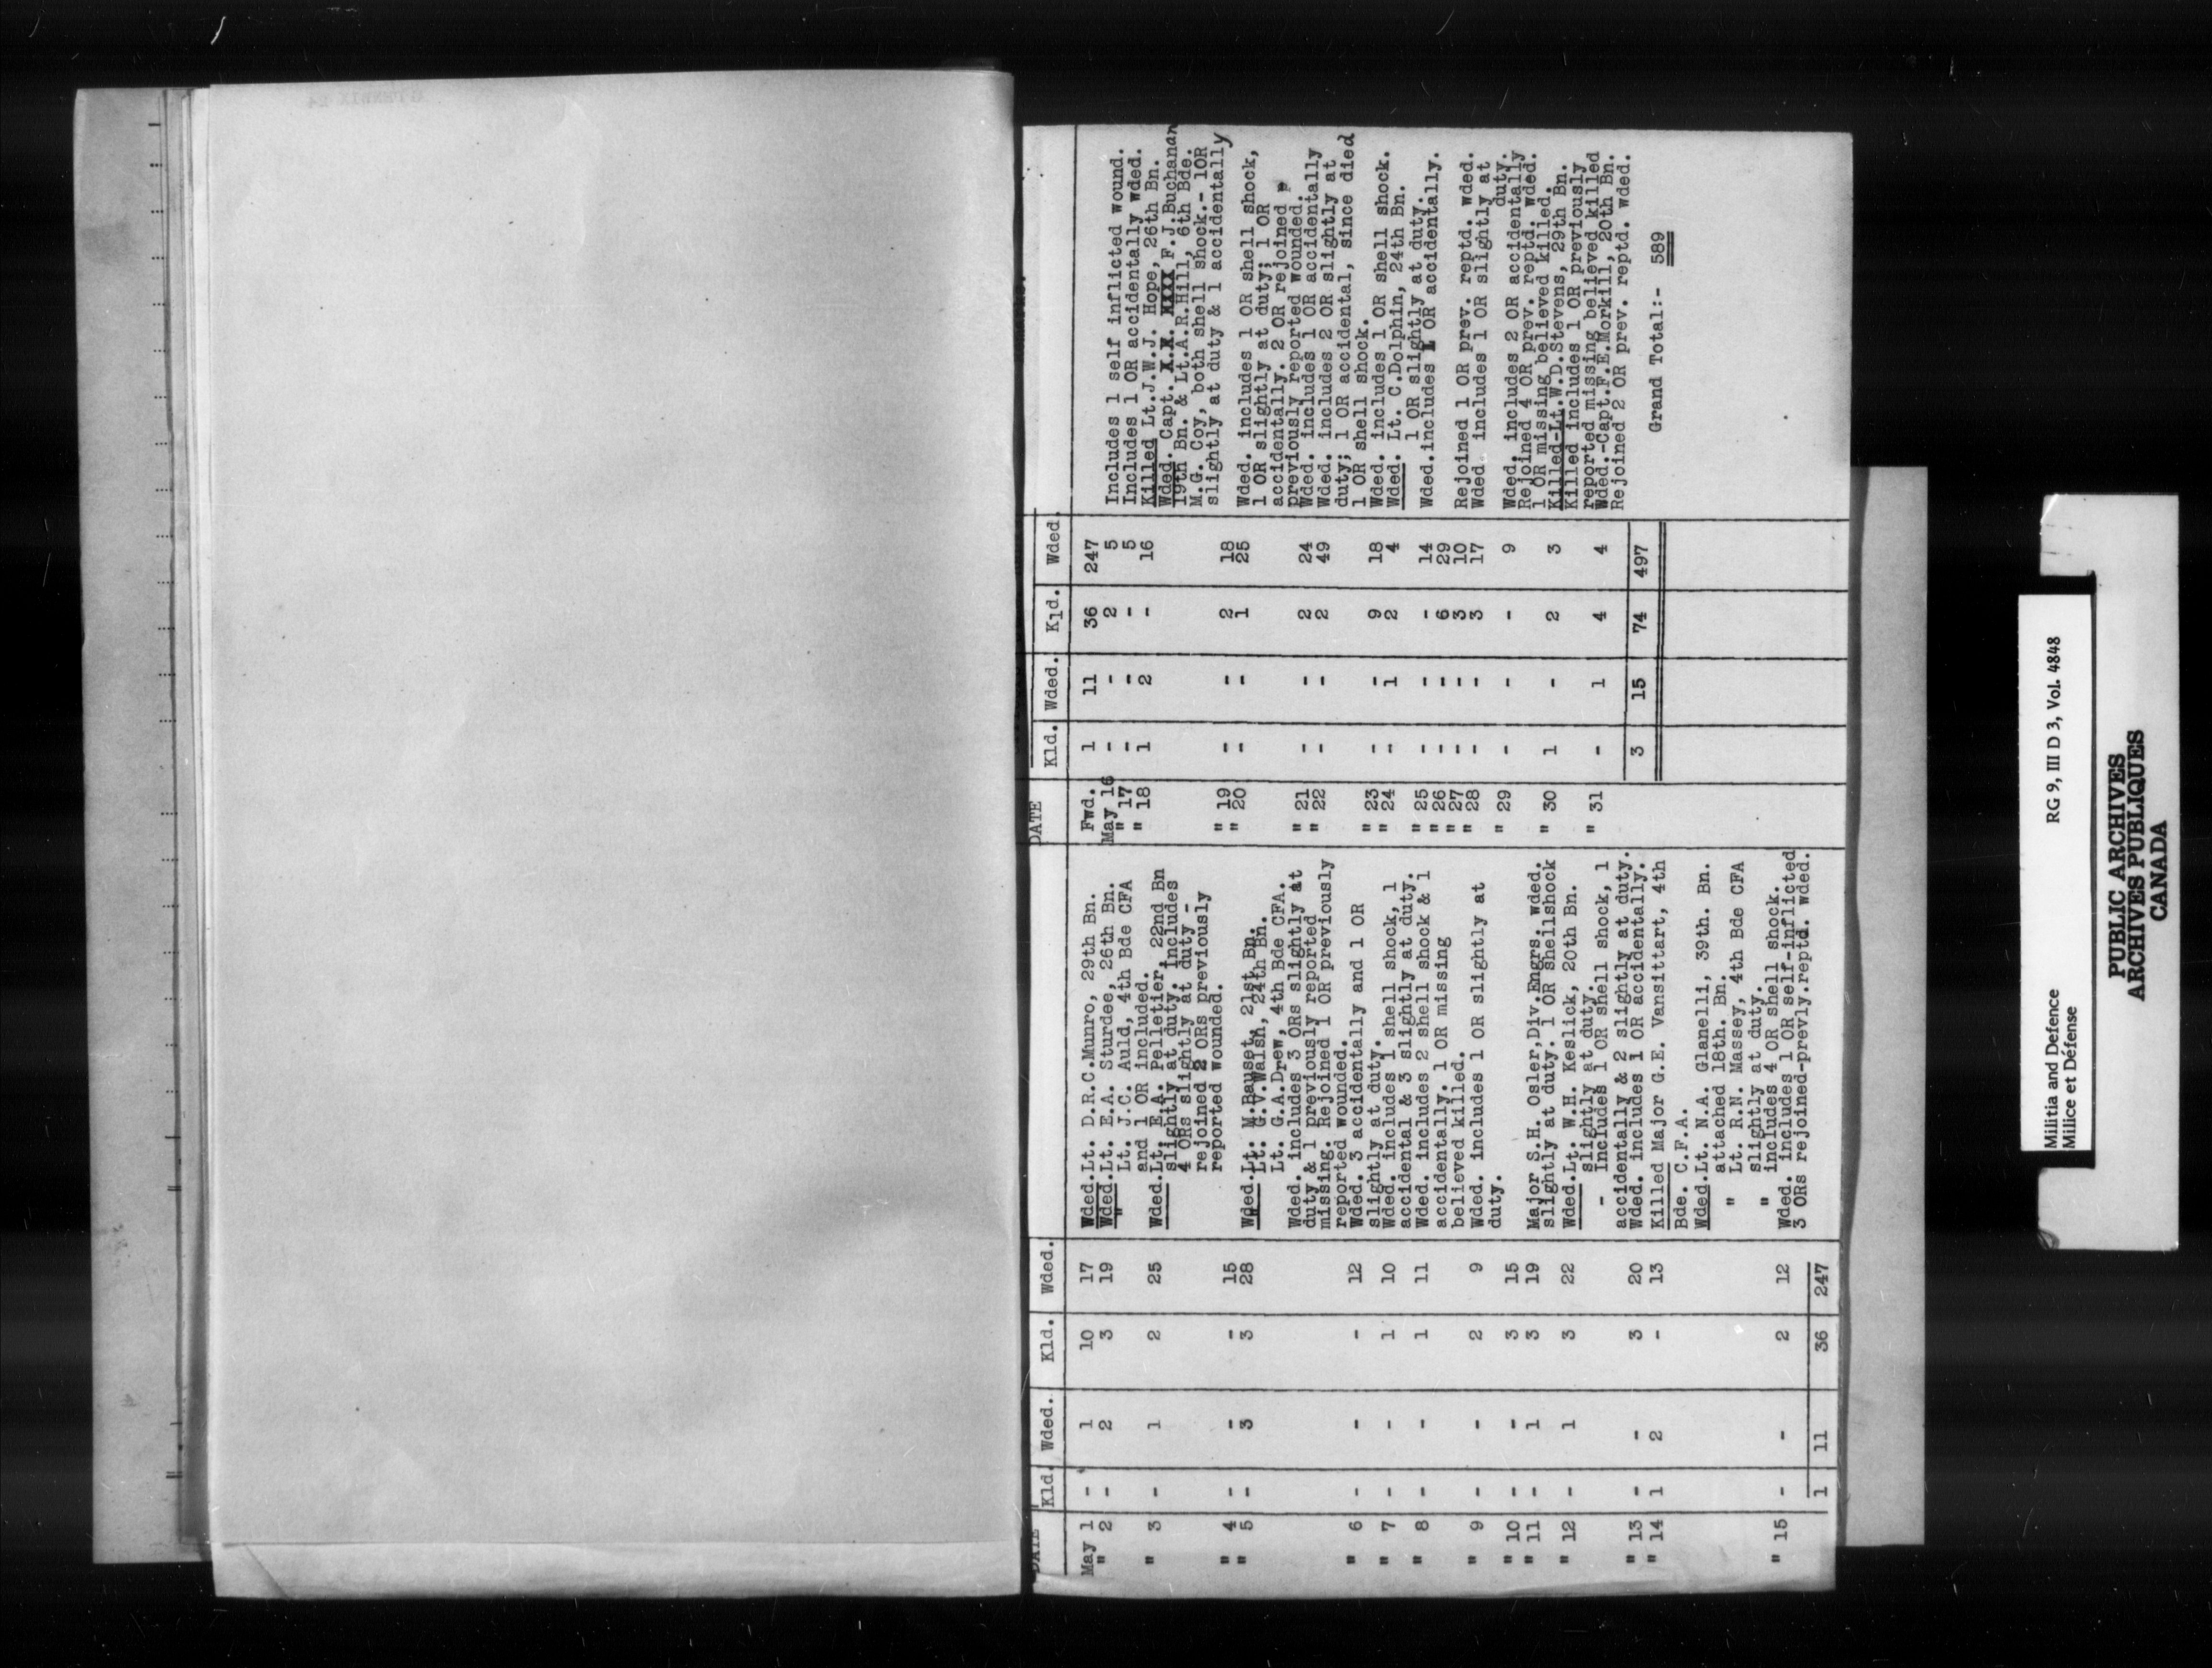 DATE Kld. Wded. Kld. Wded.
May 1 - 1 10 17 Wded. Lt. D.R.C.Munro, 29th Bn.
" 2 - 2 3 19 Wded. Lt. E.A. Sturdee, 26th Bn.
" Lt. J.C. Auld, 4th Bde CFA
and 1 OR included.
" 3 - 1 2 25 Wded. Lt. E.A. Pelletier, 22nd Bn
slightly at duty. Includes
4 ORs slightly at duty -
rejoined 2 ORs previously
reported wounded.
" 4 - - - 15
" 5 - 3 3 28 Wded. Lt. M.Bauset, 21st Bn.
" Lt. G.V.Walsh, 24th Bn.
Lt. G.A.Drew, 4th Bde CFA.
Wded. includes 3 ORs slightly at
duty & 1 previously reported
missing. Rejoined 1 OR previously
reported wounded.
" 6 - - - 12 Wded. 3 accidentally and 1 OR
slightly at duty.
" 7 - - 1 10 Wded. includes 1 shell shock, 1
accidental & 3 slightly at duty.
" 8 - - 1 11 Wded. includes 2 shell shock & 1
accidentally. 1 OR missing
believed killed.
" 9 - - 2 9 Wded. includes 1 OR slightly at
duty.
" 10 - - 3 15
" 11 - 1 3 19 Major S.H. Osler, Div.Engrs. Wded.
slightly at duty. 1 OR shellshock
" 12 - 1 3 22 Wded. Lt. W.H. Keslick, 20th Bn.
slightly at duty.
- Includes 1 OR shell shock, 1
accidentally & 2 slightly at duty.
" 13 - - 3 20 Wded. includes 1 OR accidentally.
" 14 1 2 - 13 Killed Major G.E. Vansittart, 4th
Bde. C.F.A.
Wded. Lt. N.A. Glanelli, 39th. Bn.
attached 18th. Bn.
" Lt. R.N. Massey, 4th Bde CFA
slightly at duty.
" includes 4 OR shell shock.
" 15 - - 2 12 Wded. includes 1 OR self-inflicted
3 ORs rejoined-prevly.reptd. wded.
1 11 36 247
DATE Kld. Wded. Kld. Wded.
Fwd. 1 11 36 247
May 16 - - 2 5 Includes 1 self inflicted wound.
" 17 - - - 5 Includes 1 OR accidentally wded.
" 18 1 2 - 16 Killed Lt.J.W.J. Hope, 26th Bn.
Wded. Capt. X.X. XXXX F.J.Buchanan
19th Bn. & Lt.A.R.Hill, 6th Bde.
M.G. Coy, both shell shock.- 1OR
slightly at duty & 1 accidentally
" 19 - - 2 18
" 20 - - 1 25 Wded. includes 1 OR shell shock,
1 OR slightly at duty; 1 OR
accidentally. 2 OR rejoined
previously reported wounded.
" 21 - - 2 24 Wded. includes 1 OR accidentally
" 22 - - 2 49 Wded. includes 2 OR slightly at
duty; 1 OR accidental, since died
1 OR shell shock.
" 23 - - 9 18 Wded. includes 1 OR shell shock.
" 24 - 1 2 4 Wded. Lt. C.Dolphin, 24th Bn.
1 OR slightly at duty.
" 25 - - - 14 Wded.includes 1 OR accidentally.
" 26 - - 6 29
" 27 - - 3 10 Rejoined 1 OR prev. reptd. wded.
" 28 - - 3 17 Wded includes 1 OR slightly at
duty.
" 29 - - - 9 Wded. includes 2 OR accidentally
Rejoined 4 OR prev. reptd. wded.
1 OR missing believed killed.
" 30 1 - 2 3 Killed-Lt.W.D.Stevens, 29th Bn.
Killed includes 1 OR previously
reported missing believed killed
" 31 - 1 4 4 Wded.-Capt.F.E.Morkill, 20th Bn.
Rejoined 2 OR prev. reptd. wded.
3 15 74 497
Grand Total:- 589
Militia and Defence
Milice et Défense
RG 9, III D 3, Vol. 4848
PUBLIC ARCHIVES
ARCHIVES PUBLIQUES
CANADA